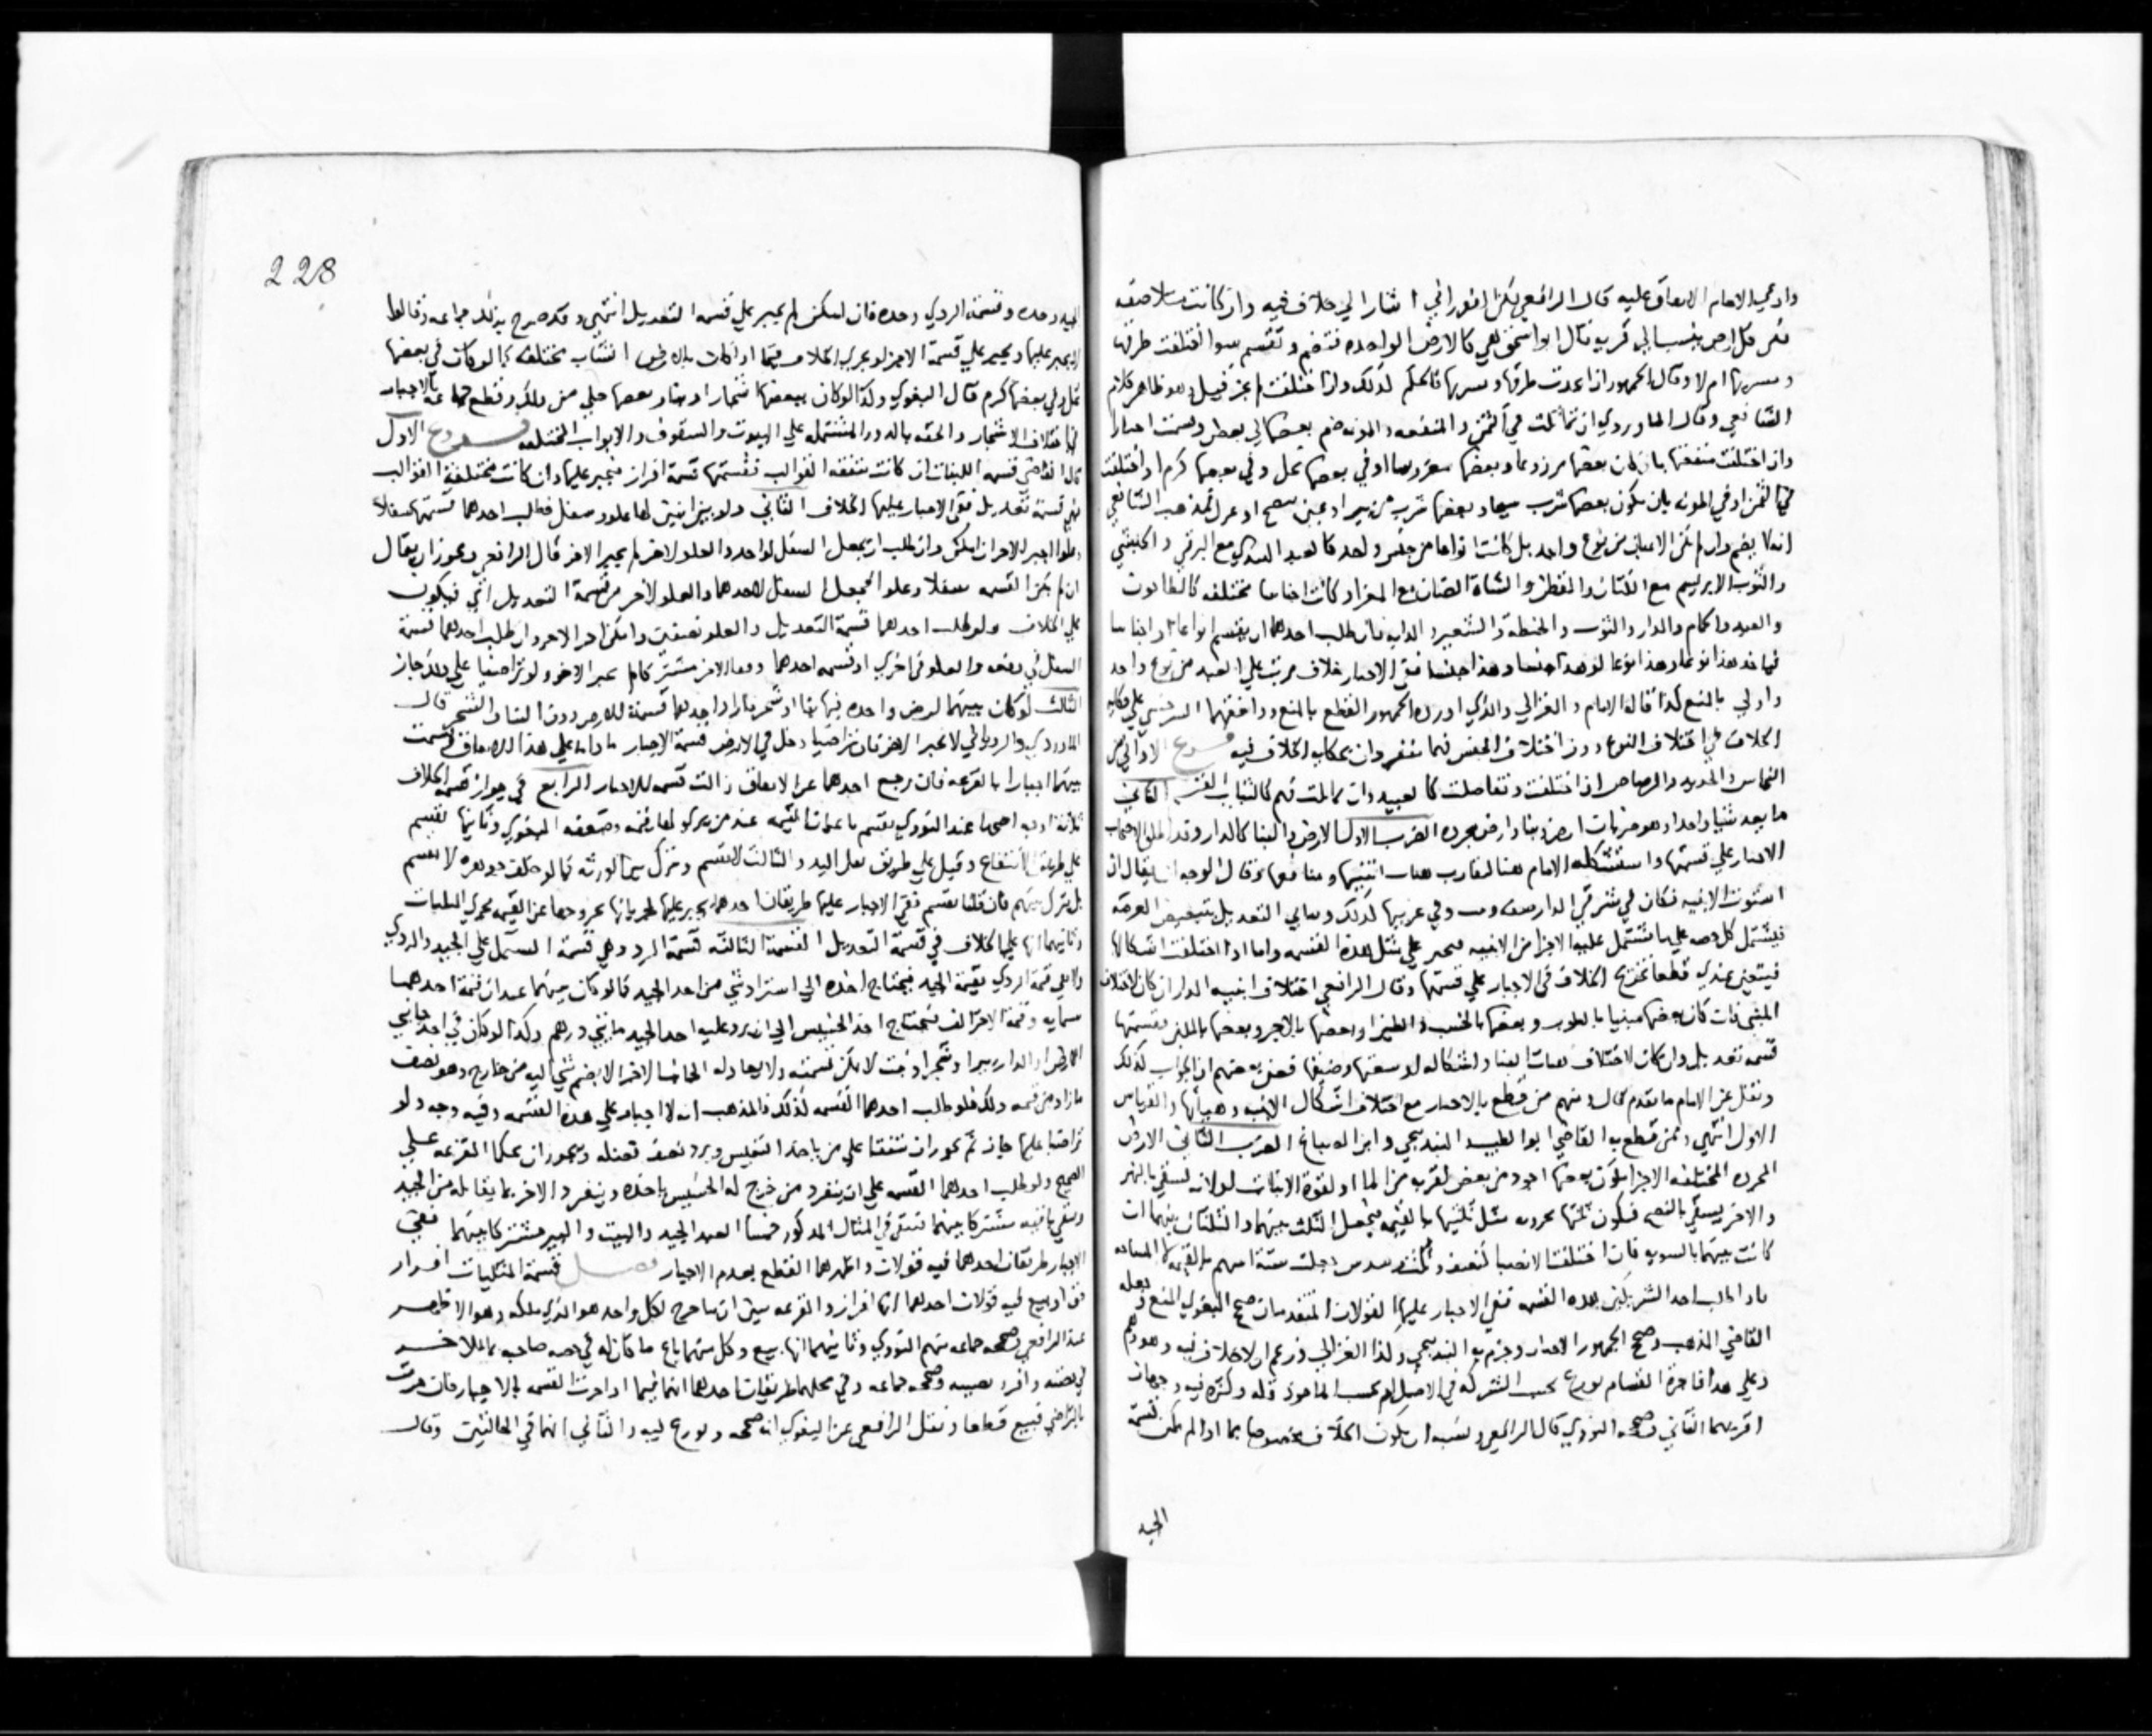 وادعى الامام الاتفاق عليه قال الرافعي لكن الفوراني اشار الي خلاف فيه وان كانت متلاصقه
قال ابو اسحق هي كالارض الواحده فتضم وتقسم سوا اختلفت طرقها
ام لا وقال الجمهور ان اتحدت طرقها وشربها فالحكم كذلك وان اختلفت لم وهو ظاهر كلام
الشافعي وقال الماوردي ان تماثلت في الثمن والمنفعه والمونه ضم بعضها الي بعض وقسمت اجبارا
وان اختلفت منفعتها بان كان بعضها مزدرعا وبعضها مغروسا او في بعضها نخل وفي بعضها كرم او اختلفت
في الثمن او في المونه بان يكون بعضها شرب سيحا وبعضها شرب من بير او عين بنضح او غرب فمذهب الشافعي
انه لا يضم وان لم تكن الاعيان من نوع واحد بل كانت انواعا من جنس واحد كالعبد التركي مع
والثوب الابريسم مع الكتان والقطن والشاة الضان مع المعز او كانت اجناسا مختلفه
والعبيد والحمام والدار والثوب والحنطه والشعير والدابه فان طلب احدهما ان يقسم انواعا او اجناسا
فياخذ هذا نوعا وهذا نوعا او هذا جنسا وهذا جنسا ففي الاجبار خلاف مرتب علي العبيد من نوع واحد
واولي بالمنع كذا قاله الامام والغزالي والذي اورده الجمهور القطع بالمنع ووافقهما السرخسي علي حكايه
الخلاف في اختلاف النوع دون اختلاف الجنس فروع الاول
النحاس والحديد والرصاص اذا اختلفت وتفاضلت كالعبيد وان تماثلت فهي كالثياب القسم الثاني
ما يعد شيا واحدا وهو الضرب الاول الارض والبنا كالدار وقد اطلق الاصحاب
الاجبار علي قسمتها واستشكله الامام وقال الوجه ان يقال ان
استوت الابنيه فكان في شرقي الدار صفه وبيت وفي غربيها كذلك التعديل بتبعيض العرصه
فيشتمل كل حصه علي ما تشتمل عليه الاخري من الابنيه فيجبر علي مثل هذه القسمه واما اذا اختلفت اشكالها
فيتعين عندي قطعا تخريج الخلاف في الاجبار علي قسمتها وقال الرافعي اختلاف ابنيه الدار ان كان لاختلاف
المبني كان بعضها مبنيا بالطوب وبعضها بالخشب والطين او بعضها بالاجر وبعضها باللبن فقسمتها
قسمه تعديل وان كان لاختلاف هيات البنا واشكاله او سعتها وضيقها فعن بعضهم ان الجواب كذلك
ونقل عن الامام ما تقدم قال ومنهم من قطع بالاجبار مع اختلاف اشكال الابنيه وهياتها والقياس
الاول انتهي وممن قطع به القاضي ابو الطيب البندنيجي وابن الصباغ الضرب الثاني الارض
المجرده المختلفه الاجزا بكون بعضها اجود من بعض لقربه من الما او لقوة الانبات او لانه يسقي بالنهر
والاخر يسقي بالنضح فيكون ثلثها لجودته مثل ثلثيها بالقيمه فيجعل الثلث سهما والثلثان سهما ان
كانت بينهما بالسويه فان اختلفت الانصبا كنصف وثلث وسدس جعلت ستة اسهم بالقيمه لا المساحه
فاذا طلب احد الشريكين هذه القسمه ففي الاجبار عليها القولان المتقدمان صحح البغوي المنع وجعله
القاضي المذهب وصحح الجمهور الاجبار وجزم به البندنيجي وكذا الغزالي وزعم انه لا خلاف فيه وهو وهم
وعلي هذا فاجرة القسام توزع بحسب الشركه في الاصل ام بحسب الماخوذ قله وكثره فيه وجهان
اقربهما الثاني وصححه النووي قال الرافعي ويشبه ان يكون الخلاف مخصوصا بما اذا لم يمكن قسمة
الجيد
228
الجيد وحده وقسمة الردي وحده فان امكن لم يجبر علي قسمه التعديل انتهي وقد صرح بذلك جماعه وقالوا
لا يجبر عليها ويجبر علي قسمة الاجزا ويجري الخلاف فيما اذا كان بالارض اشجار مختلفه كما لو كان في بعضها
نخل وفي بعضها كرم قال البغوي وكذا لو كان ببعضها اشجار او بنا وبعضها خلي من ذلك وقطع جماعه بالاجبار
في اختلاف الاشجار والحقه بالدور المشتمله علي البيوت والسقوف والابواب المختلفه فروع الاول
قال القاضي قسمه اللبنات ان كانت متفقه القوالب فقسمتها قسمة افراز فيجبر عليها وان كانت مختلفة القوالب
فهي قسمة تعديل ففي الاجبار عليها الخلاف الثاني دار بين اثنين لها علو وسفل فطلب احدهما قسمتها سفلا
وعلوا اجبر الاخر ان امكن وان طلب ان يجعل السفل لواحد والعلو لاخر لم يجبر الاخر قال الرافعي ويجوز ان يقال
ان لم يمكن القسمه سفلا وعلوا فجعل السفل لاحدهما والعلو لاخر من قسمة التعديل انتهي فيكون
علي الخلاف ولو طلب احدهما قسمة التعديل والعلو نصفين وامكن اجبر الاخر وان طلب احدهما قسمة
السفل في دفعه والعلو في اخري او قسمه احدهما وبقا الاخر مشتركا لم يجبر الاخر ولو تراضيا علي ذلك جاز
الثالث لو كان بينهما ارض واحده فيها بنا او شجر واراد احدهما قسمة الارض دون البنا والشجر قال
الماوردي والروياني لا يجبر الاخر فان تراضيا دخل في الارض قسمة الاجبار ما داما علي هذا الاتفاق فقسمت
بينهما اجبارا بالقرعه فان رجع احدهما عن الاتفاق زالت قسمه الاجبار الرابع في جواز قسمه الكلاب
ثلاثة اوجه اصحها عند النووي يقسم باعتبار القيمه عند من يري لها قيمه وضعفه البغوي وثانيها تقسم
علي طريق الانتفاع وقيل علي طريق نقل اليد والثالث لا تقسم وتترك بين الورثه كما لو خلف جوهره لا تقسم
بل تترك بينهم فان قلنا تقسم ففي الاجبار عليها طريقان احدهما يجبر عليها لجريانها بخروجها عن القيمه مجري المثليات
وثانيهما انها علي الخلاف في قسمة التعديل القسمة الثالثه قسمة الرد وهي قسمة المشتمل علي الجيد والردي
ولا تفي قيمة الردي بقيمة الجيد فيحتاج اخذه الي استرداد شي من اخذ الجيد كما لو كان بينهما عبدان قيمة احدهما
ستمايه وقيمة الاخر الف فيحتاج اخذ الخسيس الي ان يرد عليه اخذ الجيد مايتي درهم وكذا لو كان في احد جانبي
الارض او الدار بير او شجر او بيت لا تمكن قسمته ولا يعادله الجانب الاخر الا بضم شي اليه من خارج وهو نصف
ما زاد من قيمه ذلك فلو طلب احدهما القسمه كذلك فالمذهب انه لا اجبار علي هذه القسمه وفيه وجه ولو
تراضيا عليها جاز ثم يجوز ان يتفقا علي من ياخذ النفيس ويرد نصف فضله ويجوز ان يحكما القرعه علي
الصحيح ولو طلب احدهما القسمه علي ان ينفرد من خرج له الخسيس باخذه وينفرد الاخر بما يقابله من الجيد
ويبقي باقيه مشتركا بينهما فيبقي في المثال المذكور خمسا العبد الجيد والبيت والبير مشتركا بينهما ففي
الاجبار طريقان احدهما فيه قولان واظهرهما القطع بعدم الاجبار فصل قسمة المثليات افراز
حق او بيع فيه قولان احدهما انها افراز والقرعه تبين ان ما خرج لكل واحد هو الذي ملكه وهو الاظهر
عند الرافعي وصححه جماعه منهم النووي وثانيهما انها بيع وكل منهما باع ما كان له في حصه صاحبه بما للاخر
في حصته وافرد نصيبه وصححه جماعه وفي محلهما طريقان احدهما انهما فيما اذا جرت القسمه بالاجبار فان جرت
بالتراضي فبيع قطعا ونقل الرافعي عن البغوي انه صححه ونوزع فيه والثاني انهما في الحالتين وقال